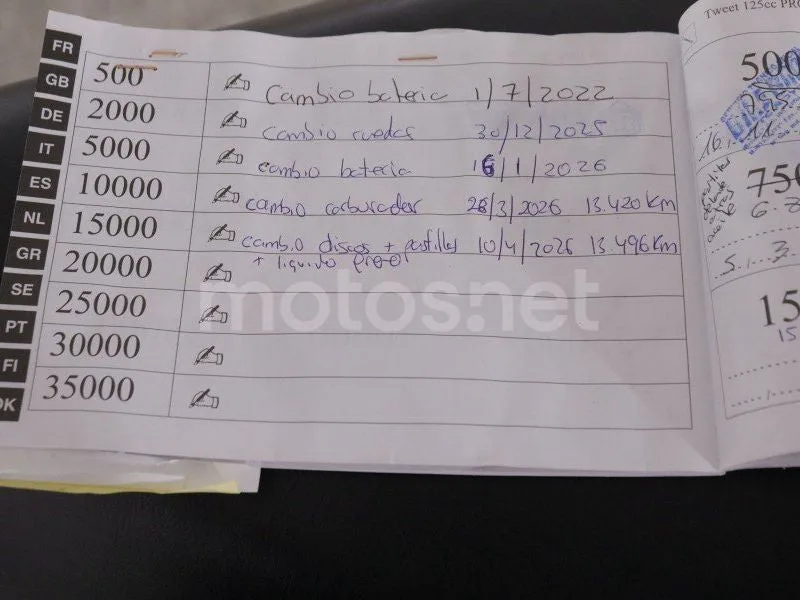 Tweet 125cc PRO
FR
GB
DE
IT
ES
NL
GR
SE
PT
FI
DK
500 Cambio bateria 1/7/2022
2000 cambio ruedas 30/12/2025
5000 cambio bateria 16/1/2026
10000 cambio carburador 26/3/2026 13.420 Km
15000 cambio discos + pastillas 10/4/2026 13.496 Km
+ liquido
20000
25000
30000
35000
motos.net
500
750
15
15